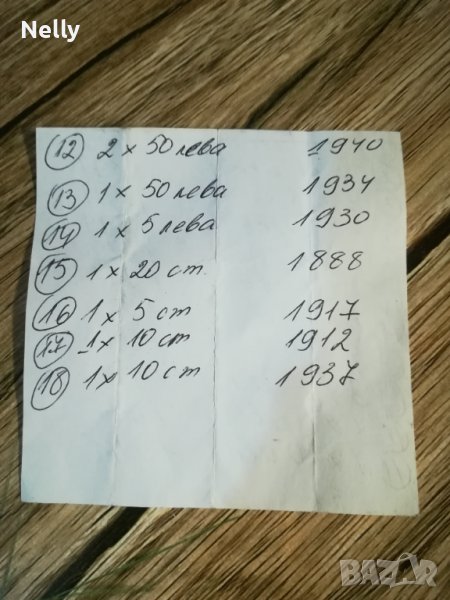 Nelly
12 2 x 50 лева 1940
13 1 x 50 лева 1934
14 1 x 5 лева 1930
15 1 x 20 ст. 1888
16 1 x 5 ст 1917
17 1 x 10 ст 1912
18 1 x 10 ст 1937
BAZAR